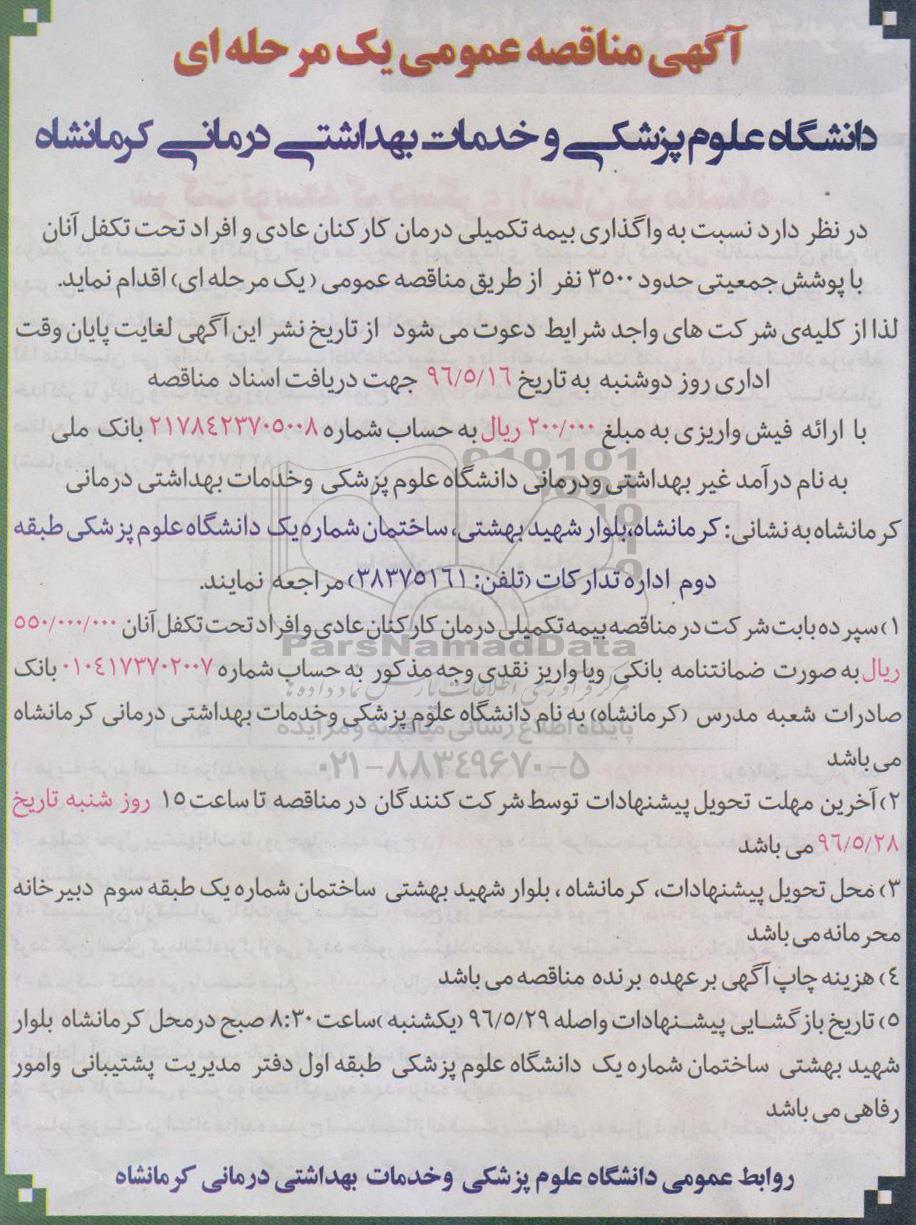 آگهی مناقصه عمومی یک مرحله ای
دانشگاه علوم پزشکی و خدمات بهداشتی درمانی کرمانشاه
در نظر دارد نسبت به واگذاری بیمه تکمیلی درمان کارکنان عادی و افراد تحت تکفل آنان
با پوشش جمعیتی حدود ۳۵۰۰ نفر از طریق مناقصه عمومی (یک مرحله ای) اقدام نماید.
لذا از کلیه‌ی شرکت های واجد شرایط دعوت می شود از تاریخ نشر این آگهی لغایت پایان وقت
اداری روز دوشنبه به تاریخ ۹۶/۵/۱۶ جهت دریافت اسناد مناقصه
با ارائه فیش واریزی به مبلغ ۲۰۰/۰۰۰ ریال به حساب شماره ۲۱۷۸۴۲۳۷۰۵۰۰۸ بانک ملی
به نام درآمد غیر بهداشتی ودرمانی دانشگاه علوم پزشکی وخدمات بهداشتی درمانی
کرمانشاه به نشانی: کرمانشاه،بلوار شهید بهشتی، ساختمان شماره یک دانشگاه علوم پزشکی طبقه
دوم اداره تدارکات (تلفن: ۳۸۳۷۵۱۶۱) مراجعه نمایند.
۱) سپرده بابت شرکت در مناقصه بیمه تکمیلی درمان کارکنان عادی و افراد تحت تکفل آنان ۵۵۰/۰۰۰/۰۰۰
ریال به صورت ضمانتنامه بانکی ویا واریز نقدی وجه مذکور به حساب شماره ۰۱۰۴۱۷۳۷۰۲۰۰۷ بانک
صادرات شعبه مدرس (کرمانشاه) به نام دانشگاه علوم پزشکی وخدمات بهداشتی درمانی کرمانشاه
می باشد
۲) آخرین مهلت تحویل پیشنهادات توسط شرکت کنندگان در مناقصه تا ساعت ۱۵ روز شنبه تاریخ
۹۶/۵/۲۸ می باشد
۳) محل تحویل پیشنهادات، کرمانشاه ، بلوار شهید بهشتی ساختمان شماره یک طبقه سوم دبیرخانه
محرمانه می باشد
۴) هزینه چاپ آگهی بر عهده برنده مناقصه می باشد
۵) تاریخ بازگشایی پیشنهادات واصله ۹۶/۵/۲۹ (یکشنبه )ساعت ۸:۳۰ صبح درمحل کرمانشاه بلوار
شهید بهشتی ساختمان شماره یک دانشگاه علوم پزشکی طبقه اول دفتر مدیریت پشتیبانی وامور
رفاهی می باشد
روابط عمومی دانشگاه علوم پزشکی وخدمات بهداشتی درمانی کرمانشاه
ParsNamadData
پایگاه اطلاع رسانی مناقصه و مزایده
۰۲۱-۸۸۳۴۹۶۷۰-۵